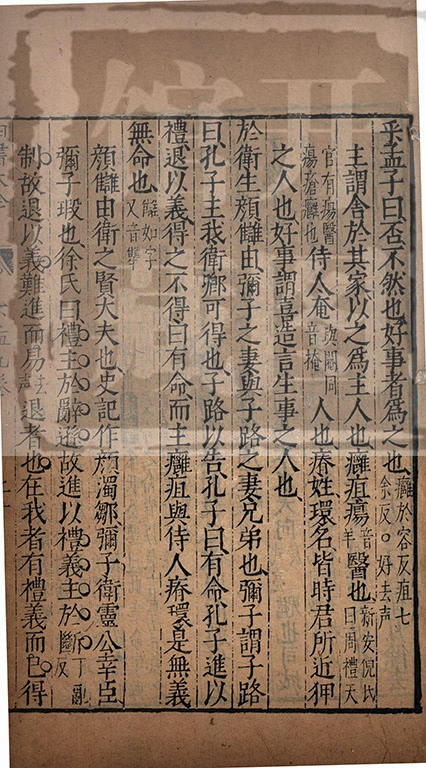 乎孟子曰否不然也好事者為之也癰於容反疽七余反○好去声
主謂舍於其家以之為主人也癰疽瘍音羊醫也新安倪氏曰周禮天
官有瘍醫瘍瘡癰也侍人奄與閹同音掩人也瘠姓環名皆時君所近狎
之人也好事謂喜造言生事之人也
於衛主顔讎由彌子之妻與子路之妻兄弟也彌子謂子路
曰孔子主我衛卿可得也子路以告孔子曰有命孔子進以
禮退以義得之不得曰有命而主癰疽與侍人瘠環是無義
無命也讎如字又音犨
顔讎由衛之賢大夫也史記作顔濁鄒彌子衛靈公幸臣
彌子瑕也徐氏曰禮主於辭遜故進以禮義主於斷丁亂反
制故退以義難進而易去聲退者也在我者有禮義而已得